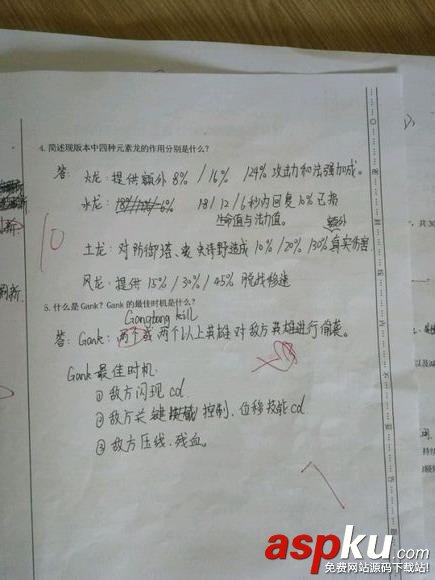 4. 简述现版本中四种元素龙的作用分别是什么?
答: 火龙: 提供额外 8% / 16% / 24% 攻击力和法强加成。
水龙: 18 / 12 / 6 秒内回复 10% 已损
生命值与法力值。
额外
10
土龙: 对防御塔、 史诗野怪造成 10% / 20% / 30% 真实伤害
风龙: 提供 15% / 30% / 45% 脱战移速
5. 什么是 Gank? Gank 的最佳时机是什么?
kill
答: Gank: 两个或两个以上英雄对敌方英雄进行偷袭。
Gank 最佳时机
① 敌方闪现 cd
② 敌方关键 控制、位移技能 cd
③ 敌方压线、残血。
aspku.com
免费网站源码下载站!